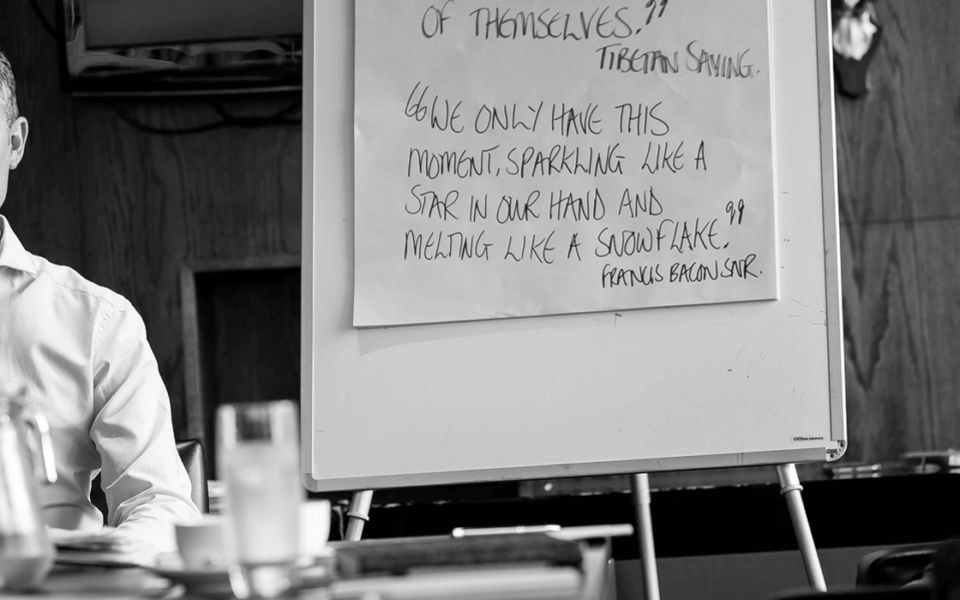 OF THEMSELVES."
TIBETAN SAYING.
"WE ONLY HAVE THIS
MOMENT, SPARKLING LIKE A
STAR IN OUR HAND AND
MELTING LIKE A SNOWFLAKE."
FRANCIS BACON SNR.